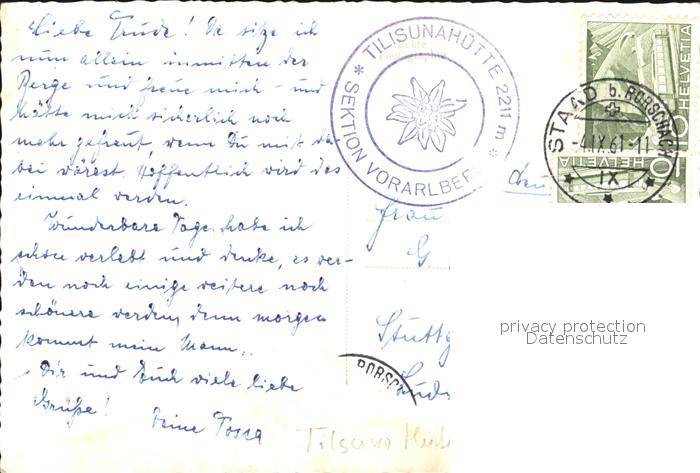 Liebe Trude! Da sitze ich
nun allein inmitten der
Berge und freue mich - und
hätte mich sicherlich noch
mehr gefreut, wenn Du mit da
bei wärest. Hoffentlich wird das
einmal werden.
Wunderbare Tage habe ich
schon verlebt und denke, es wer-
den noch einige weitere noch
schönere werden, denn morgen
kommt mein Mann.
Dir und Euch viele liebe
Grüße!
Deine
* TILISUNAHÜTTE 2211 m *
SEKTION VORARLBERG
HELVETIA
10
HELVETIA
10
STAAD b. RORSCHACH
-4.IX.61-11
IX
Frau
G
Stuttg
RORSC
privacy protection
Datenschutz